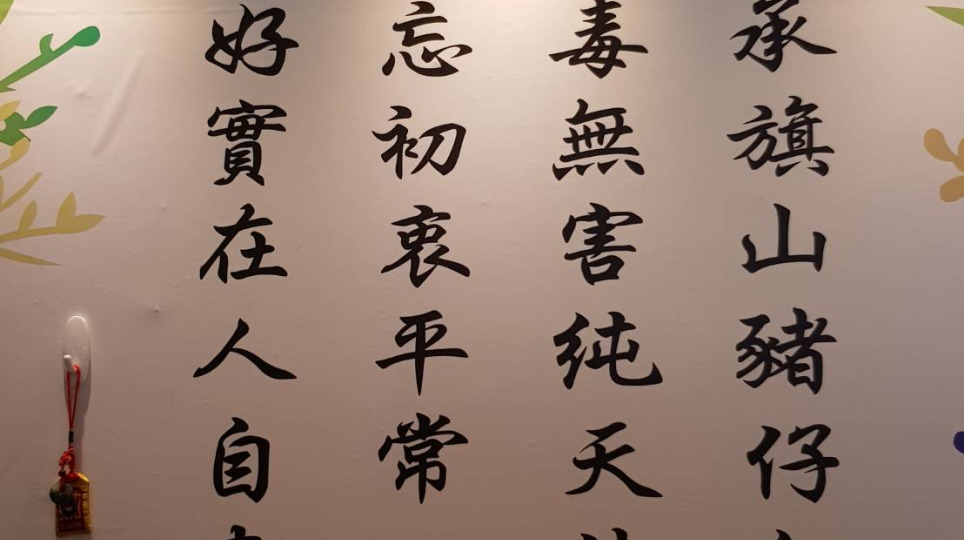 承旗山豬仔
毒無害純天
忘初衷平常
好實在人自